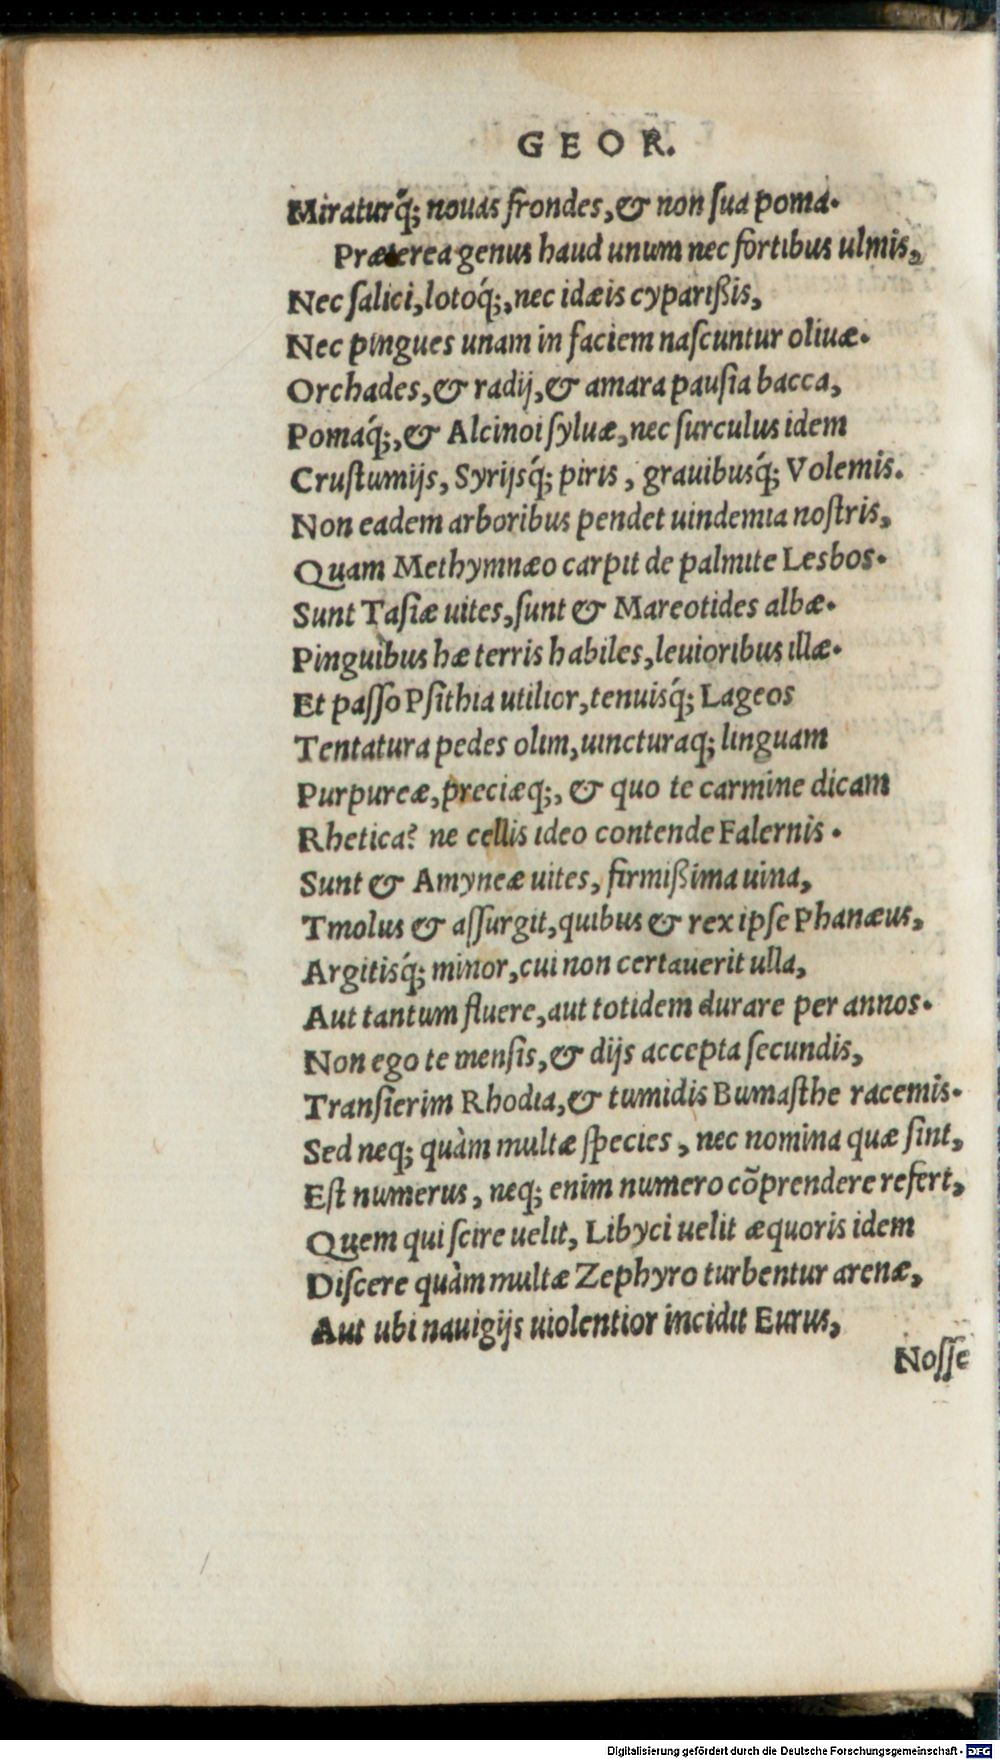 GEOR.
Miraturq́; nouas frondes, & non sua poma.
Præterea genus haud unum nec fortibus ulmis,
Nec salici, lotoq́;, nec idæis cyparißis,
Nec pingues unam in faciem nascuntur oliuæ.
Orchades, & radij, & amara pausia bacca,
Pomaq́;, & Alcinoi syluæ, nec surculus idem
Crustumijs, Syrijsq́; piris, grauibusq́; Volemis.
Non eadem arboribus pendet uindemia nostris,
Quam Methymnæo carpit de palmite Lesbos.
Sunt Tasiæ uites, sunt & Mareotides albæ.
Pinguibus hæ terris habiles, leuioribus illæ.
Et passo Psithia utilior, tenuisq́; Lageos
Tentatura pedes olim, uincturaq; linguam
Purpureæ, preciæq;, & quo te carmine dicam
Rhetica? ne cellis ideo contende Falernis.
Sunt & Amyneæ uites, firmißima uina,
Tmolus & assurgit, quibus & rex ipse Phanæus,
Argitisq́; minor, cui non certauerit ulla,
Aut tantum fluere, aut totidem durare per annos.
Non ego te mensis, & dijs accepta secundis,
Transierim Rhodia, & tumidis Bumasthe racemis.
Sed neq; quàm multæ species, nec nomina quæ sint,
Est numerus, neq; enim numero cõprendere refert,
Quem qui scire uelit, Libyci uelit æquoris idem
Discere quàm multæ Zephyro turbentur arenæ,
Aut ubi nauigijs uiolentior incidit Eurus,
Nosse
Digitalisierung gefördert durch die Deutsche Forschungsgemeinschaft - DFG